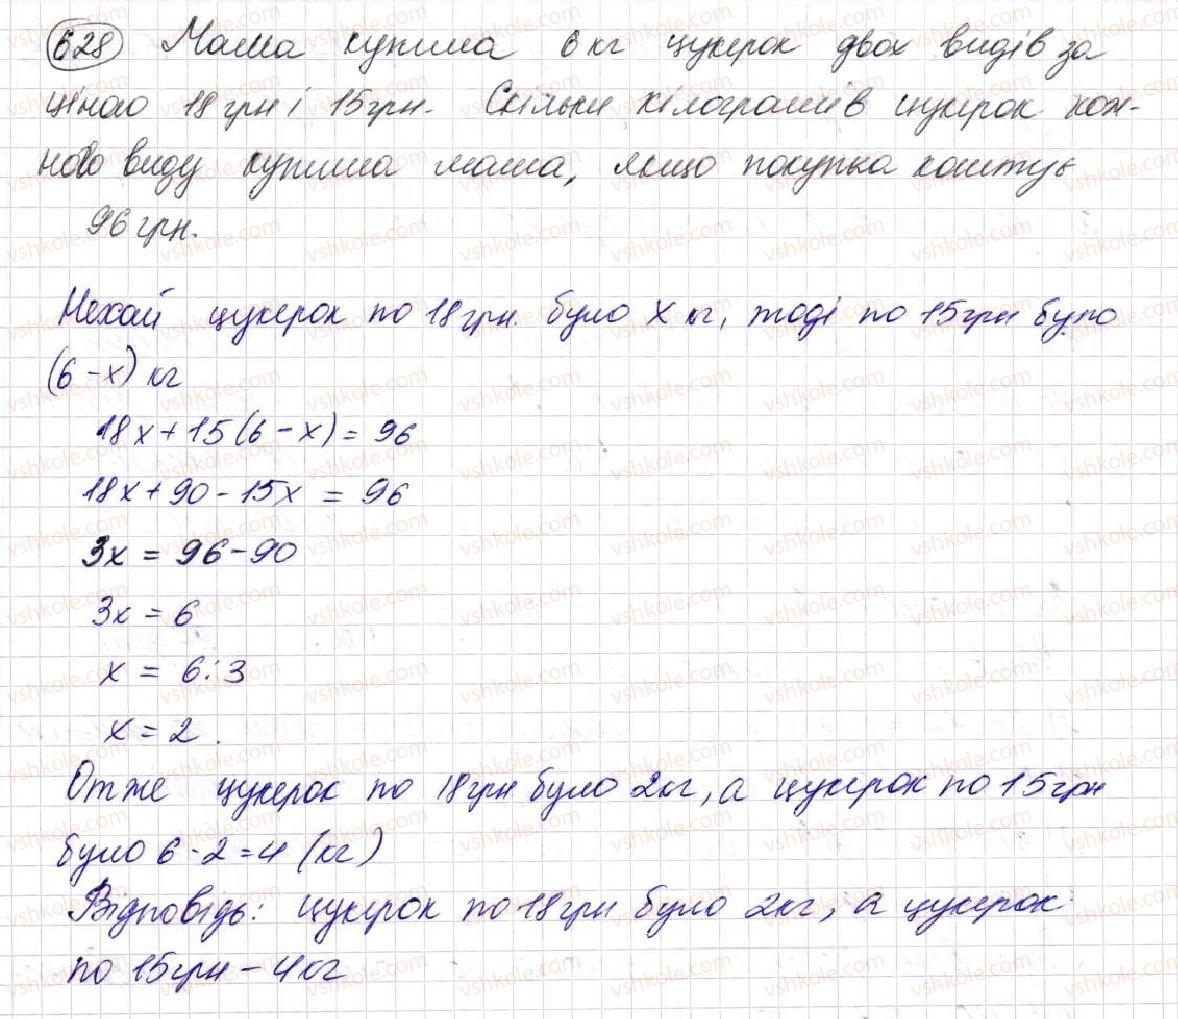 628 Мама купила 6 кг цукерок двох видів за
ціною 18 грн і 15 грн. Скільки кілограмів цукерок кож-
ного виду купила мама, якщо покупка коштує
96 грн.
Нехай цукерок по 18 грн. було x кг, тоді по 15 грн було
(6-x) кг
18x+15(6-x)=96
18x+90-15x=96
3x=96-90
3x=6
x=6:3
x=2.
Отже цукерок по 18 грн було 2 кг, а цукерок по 15 грн
було 6-2=4 (кг)
Відповідь: цукерок по 18 грн було 2 кг, а цукерок
по 15 грн - 4 кг